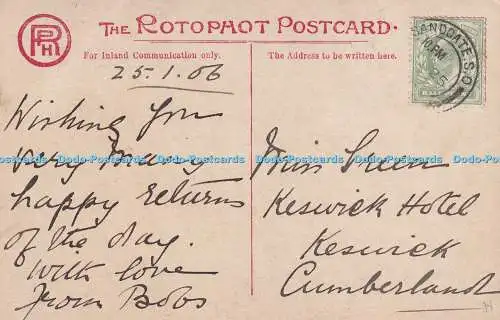 RPH
THE ROTOPHOT POSTCARD.
For Inland Communication only.
The Address to be written here.
SANDGATE S.O
25.1.06
Wishing you
very many
happy returns
of the day.
With love
From Bobs
Miss Green
Keswick Hotel
Keswick
Cumberland
Dodo-Postcards Dodo-Postcards Dodo-Postcards Dodo-Postcards Dodo-Postcards